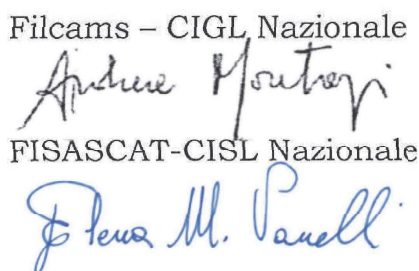 Filcams – CIGL Nazionale
Andrea Montagni
FISASCAT-CISL Nazionale
Elena M. Vanelli